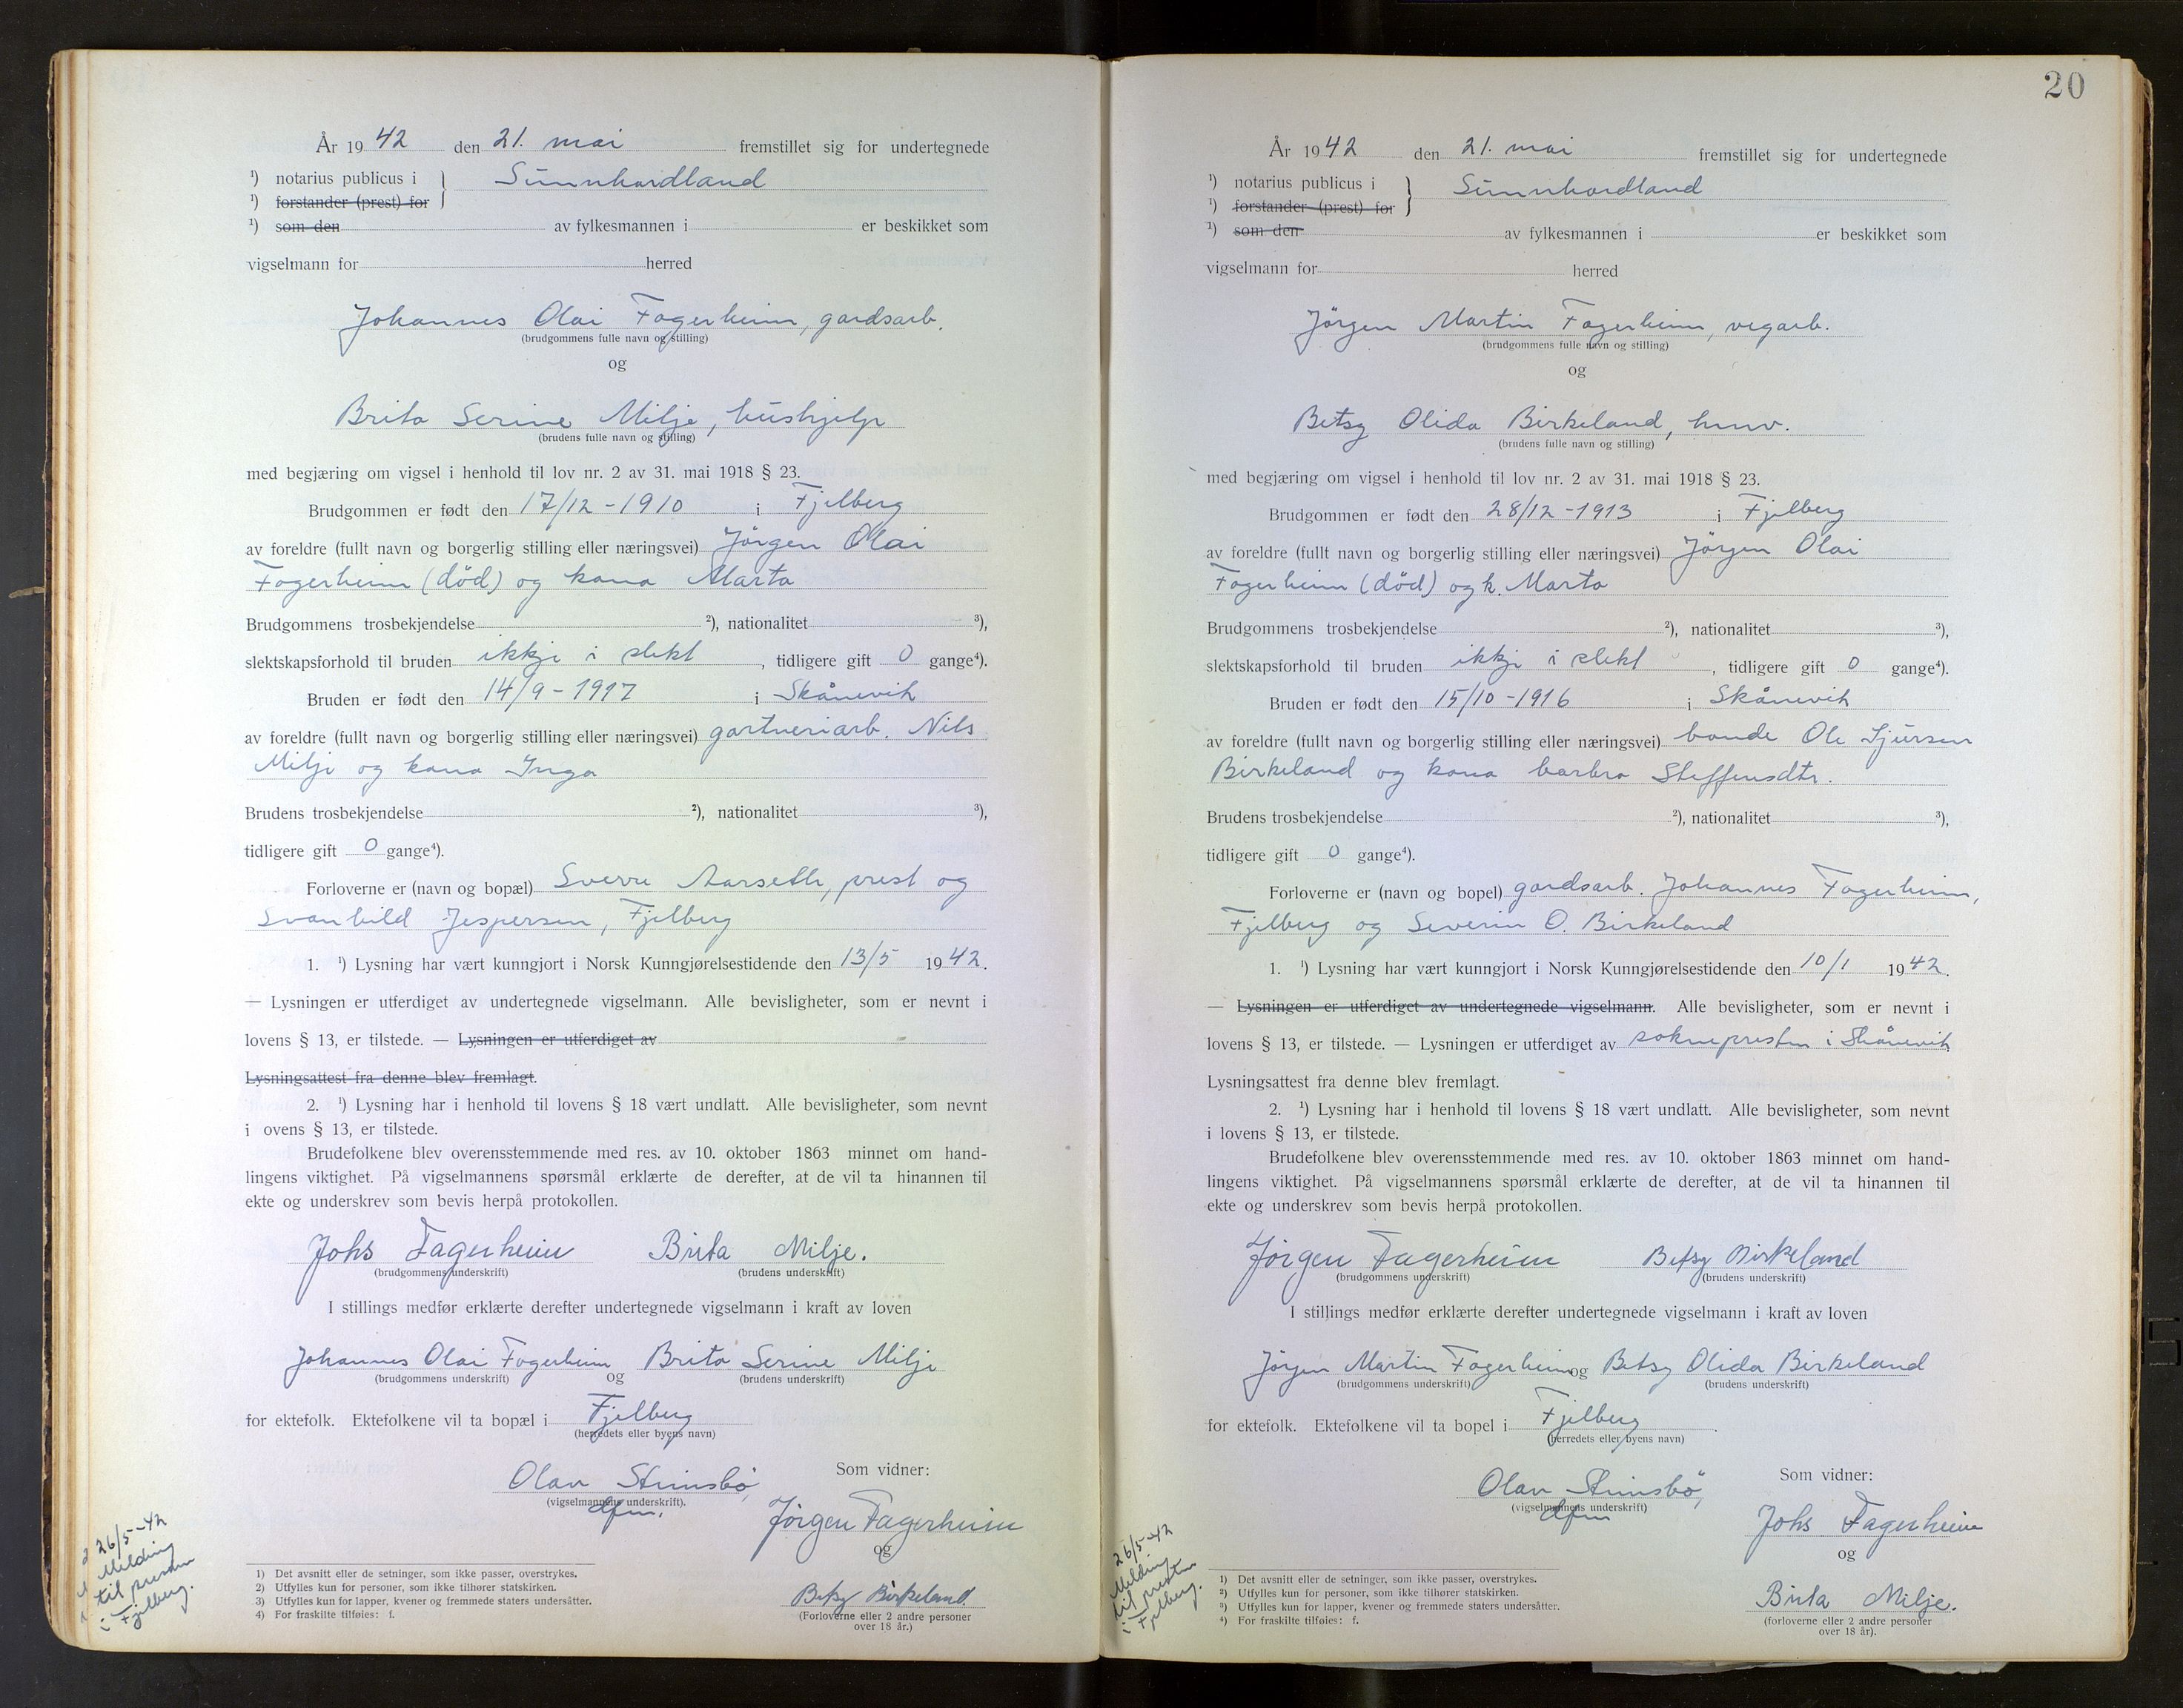 År 1942 den 21. mai fremstillet sig for undertegnede
¹) notarius publicus i } Sunnhordland
¹) forstander (prest) for
¹) som den av fylkesmannen i er beskikket som
vigselmann for herred
Johannes Olai Fagerheim, gardsarb.
(brudgommens fulle navn og stilling)
og
Brita Serine Milje, hushjelp
(brudens fulle navn og stilling)
med begjæring om vigsel i henhold til lov nr. 2 av 31. mai 1918 § 23.
Brudgommen er født den 17/12 - 1910 i Fjelberg
av foreldre (fullt navn og borgerlig stilling eller næringsvei) Jörgen Olai
Fagerheim (död) og kona Marta
Brudgommens trosbekjendelse ²), nationalitet ³),
slektskapsforhold til bruden ikkje i slekt, tidligere gift 0 gange⁴).
Bruden er født den 14/9 - 1917 i Skånevik
av foreldre (fullt navn og borgerlig stilling eller næringsvei) gartneriarb. Nils
Milje og kona Inga
Brudens trosbekjendelse ²), nationalitet ³),
tidligere gift 0 gange⁴).
Forloverne er (navn og bopæl) Sverre Aarseth, prest og
Svanhild Jespersen, Fjelberg
1. ¹) Lysning har vært kunngjort i Norsk Kunngjørelsestidende den 13/5 1942.
— Lysningen er utferdiget av undertegnede vigselmann. Alle bevisligheter, som er nevnt i
lovens § 13, er tilstede. — Lysningen er utferdiget av
Lysningsattest fra denne blev fremlagt.
2. ¹) Lysning har i henhold til lovens § 18 vært undlatt. Alle bevisligheter, som nevnt
i ovens § 13, er tilstede.
Brudefolkene blev overensstemmende med res. av 10. oktober 1863 minnet om hand-
lingens viktighet. På vigselmannens spørsmål erklærte de derefter, at de vil ta hinannen til
ekte og underskrev som bevis herpå protokollen.
Johs Fagerheim Brita Milje.
(brudgommens underskrift) (brudens underskrift)
I stillings medfør erklærte derefter undertegnede vigselmann i kraft av loven
Johannes Olai Fagerheim og Brita Serine Milje
(brudgommens underskrift) (brudens underskrift)
for ektefolk. Ektefolkene vil ta bopæl i Fjelberg
(herredets eller byens navn)
Olav Steinsbö, Som vidner:
(vigselmannens underskrift).
dfm.
Jørgen Fagerheim
og
Betsy Birkeland
(Forloverne eller 2 andre personer
over 18 år.)
26/5-42
Melding
til presten
i Fjelberg.
1) Det avsnitt eller de setninger, som ikke passer, overstrykes.
2) Utfylles kun for personer, som ikke tilhører statskirken.
3) Utfylles kun for lapper, kvener og fremmede staters undersåtter.
4) For fraskilte tilføies: f.
20
År 1942 den 21. mai fremstillet sig for undertegnede
¹) notarius publicus i } Sunnhordland
¹) forstander (prest) for
¹) som den av fylkesmannen i er beskikket som
vigselmann for herred
Jörgen Martin Fagerheim, vegarb.
(brudgommens fulle navn og stilling)
og
Betsy Olida Birkeland, husv.
(brudens fulle navn og stilling)
med begjæring om vigsel i henhold til lov nr. 2 av 31. mai 1918 § 23.
Brudgommen er født den 28/12 - 1913 i Fjelberg
av foreldre (fullt navn og borgerlig stilling eller næringsvei) Jörgen Olai
Fagerheim (död) og k. Marta
Brudgommens trosbekjendelse ²), nationalitet ³),
slektskapsforhold til bruden ikkje i slekt, tidligere gift 0 gange⁴).
Bruden er født den 15/10 - 1916 i Skånevik
av foreldre (fullt navn og borgerlig stilling eller næringsvei) bonde Ole Sjursen
Birkeland og kona barbra Steffensdtr.
Brudens trosbekjendelse ²), nationalitet ³),
tidligere gift 0 gange⁴).
Forloverne er (navn og bopel) gardsarb. Johannes Fagerheim,
Fjelberg og Severin O. Birkeland
1. ¹) Lysning har vært kunngjort i Norsk Kunngjørelsestidende den 10/1 1942.
— Lysningen er utferdiget av undertegnede vigselmann. Alle bevisligheter, som er nevnt i
lovens § 13, er tilstede. — Lysningen er utferdiget av soknepresten i Skånevik
Lysningsattest fra denne blev fremlagt.
2. ¹) Lysning har i henhold til lovens § 18 vært undlatt. Alle bevisligheter, som nevnt
i lovens § 13, er tilstede.
Brudefolkene blev overensstemmende med res. av 10. oktober 1863 minnet om hand-
lingens viktighet. På vigselmannens spørsmål erklærte de derefter, at de vil ta hinannen til
ekte og underskrev som bevis herpå protokollen.
Jørgen Fagerheim Betsy Birkeland
(brudgommens underskrift) (brudens underskrift)
I stillings medfør erklærte derefter undertegnede vigselmann i kraft av loven
Jörgen Martin Fagerheim og Betsy Olida Birkeland
(brudgommens underskrift) (brudens underskrift)
for ektefolk. Ektefolkene vil ta bopel i Fjelberg.
(herredets eller byens navn)
Olav Steinsbö, Som vidner:
(vigselmannens underskrift)
dfm
Johs Fagerheim
og
Brita Milje.
(forloverne eller 2 andre personer
over 18 år).
26/5-42
Melding
til presten
i Fjelberg.
¹) Det avsnitt eller de setninger, som ikke passer, overstrykes.
²) Utfylles kun for personer, som ikke tilhører statskirken.
³) Utfylles kun for lapper, kvener og fremmede staters undersåtter.
⁴) For fraskilte tilføies: f.